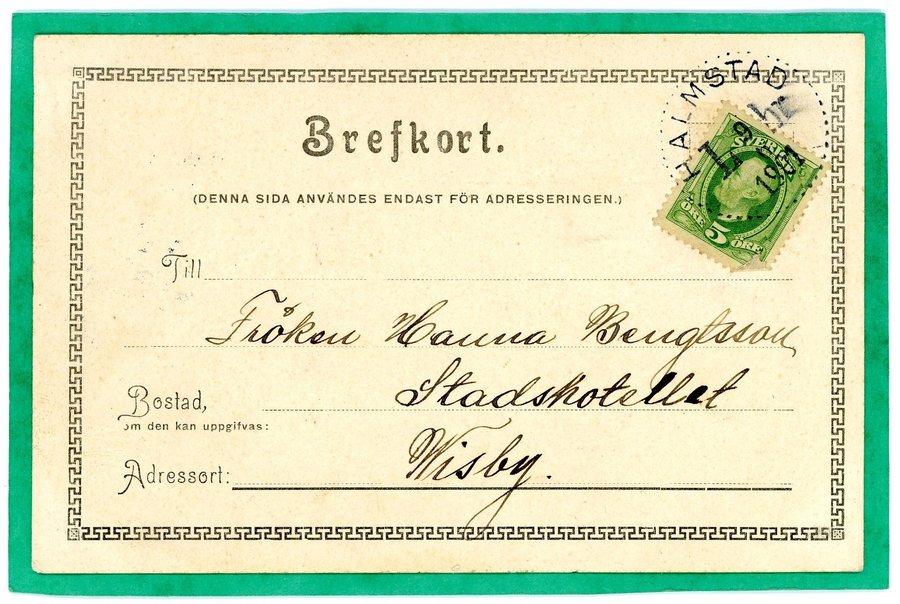 HALMSTAD
1901
SVERIGE
ÖRE 5 ÖRE
Brefkort.
(DENNA SIDA ANVÄNDES ENDAST FÖR ADRESSERINGEN.)
Till
Fröken Hanna Bengtsson
Bostad,
Stadshotellet
om den kan uppgifvas:
Adressort: Wisby.